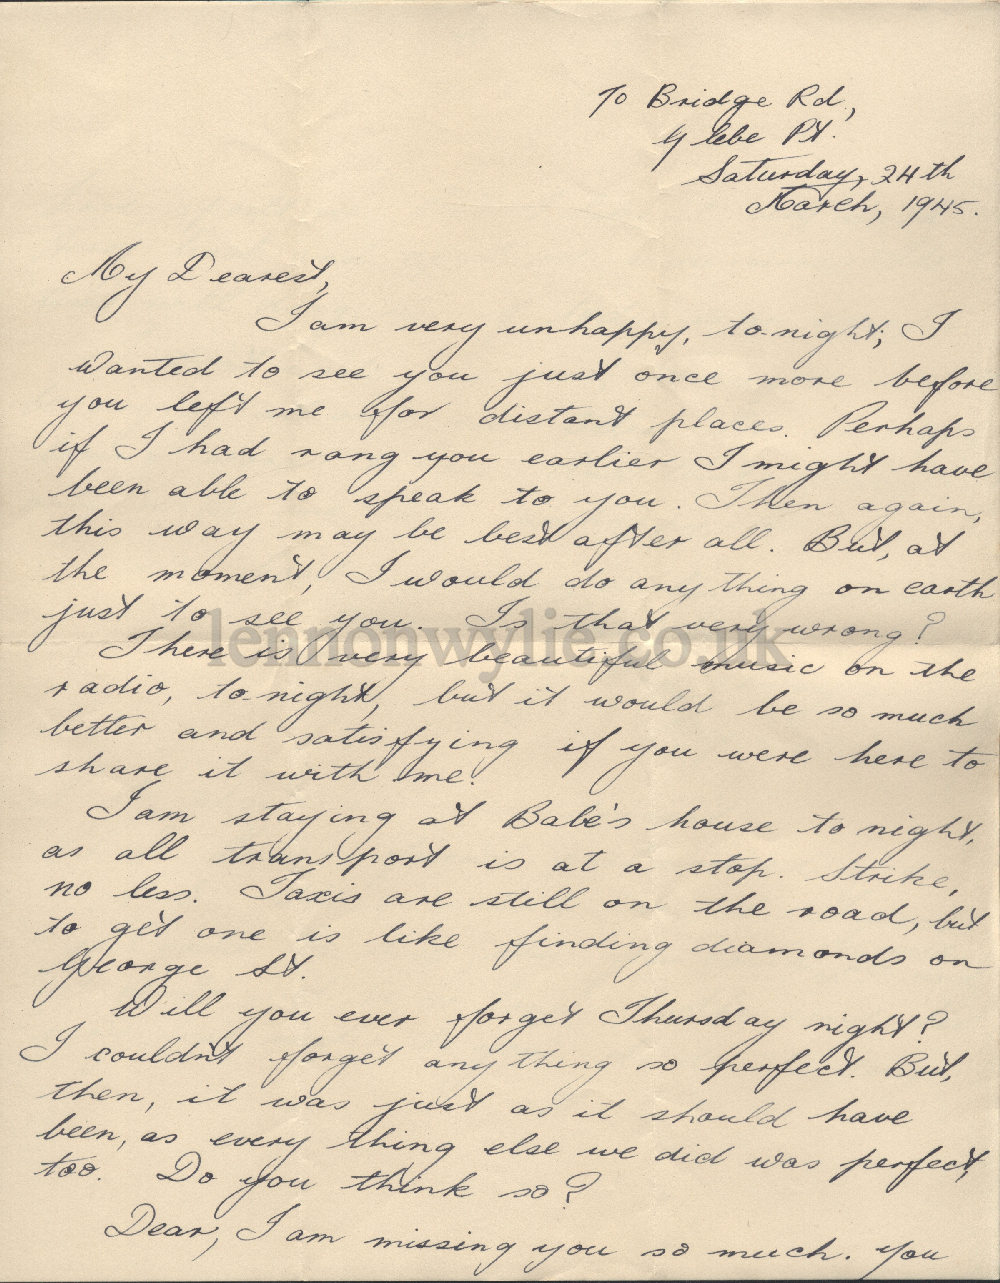 70 Bridge Rd,
Glebe Pt.
Saturday, 24th
March, 1945.
My Dearest,
I am very unhappy, to-night; I
wanted to see you just once more before
you left me for distant places. Perhaps
if I had rang you earlier I might have
been able to speak to you. Then again,
this way may be best after all. But, at
the moment, I would do anything on earth
just to see you. Is that very wrong?
lennonwylie.co.uk
There is very beautiful music on the
radio, to-night, but it would be so much
better and satisfying if you were here to
share it with me.
I am staying at Babe's house to night,
as all transport is at a stop. Strike,
no less. Taxis are still on the road, but
to get one is like finding diamonds on
George St.
Will you ever forget Thursday night?
I couldn't forget anything so perfect. But,
then, it was just as it should have
been, as every thing else we did was perfect
too. Do you think so?
Dear, I am missing you so much. You